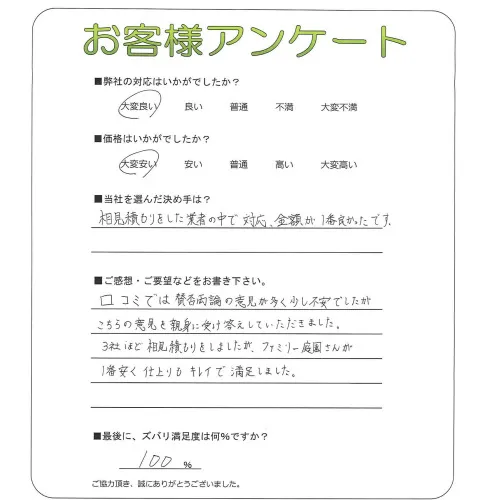 お客様アンケート
■弊社の対応はいかがでしたか?
大変良い 良い 普通 不満 大変不満
■価格はいかがでしたか?
大変安い 安い 普通 高い 大変高い
■当社を選んだ決め手は?
相見積もりをした業者の中で対応、金額が1番良かったです。
■ご感想・ご要望などをお書き下さい。
口コミでは賛否両論の意見が多く少し不安でしたが
こちらの意見を親身に受け答えしていただきました。
3社ほど相見積もりをしましたが、ファミリー庭園さんが
1番安く仕上りもキレイで満足しました。
■最後に、ズバリ満足度は何%ですか?
100 %
ご協力頂き、誠にありがとうございました。